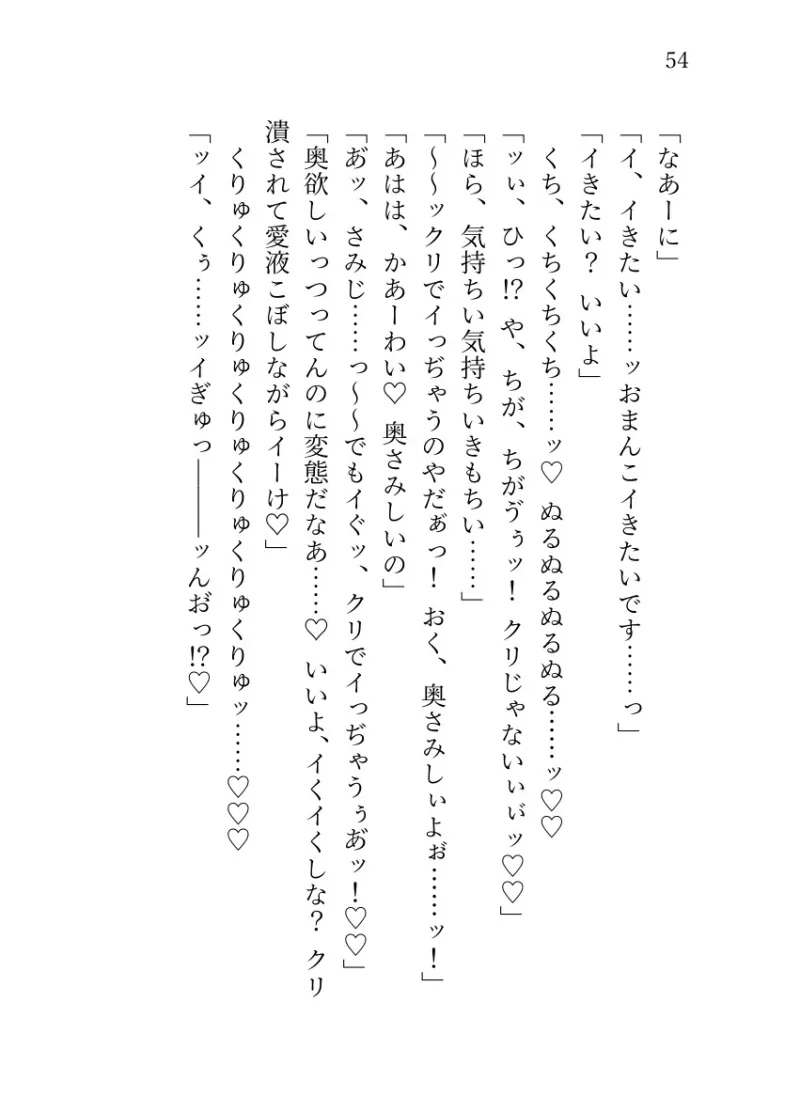 54
「なあーに」
「イ、イきたい……ッおまんこイきたいです……っ」
「イきたい？　いいよ」
　くち、くちくちくち……ッ♡　ぬるぬるぬるぬる……ッ♡♡
「ッぃ、ひっ⁉　や、ちが、ちがゔぅッ！　クリじゃないぃぃ゙ッ♡♡」
「ほら、気持ちい気持ちいきもちい……」
「～～ックリでイっぢゃうのやだぁ゙っ！　おく、奥さみしぃよぉ゙……ッ！」
「あはは、かあーわい♡　奥さみしいの」
「あ゙ッ、さみじ……っ～～でもイぐッ、クリでイっぢゃうぅあ゙ッ！♡♡」
「奥欲しいっつってんのに変態だなあ……♡　いいよ、イくイくしな？　クリ
潰されて愛液こぼしながらイーけ♡」
　くりゅくりゅくりゅくりゅくりゅくりゅくりゅッ……♡♡♡
「ッイ、くぅ……ッイぎゅっ―――ッんお゙っ⁉♡」